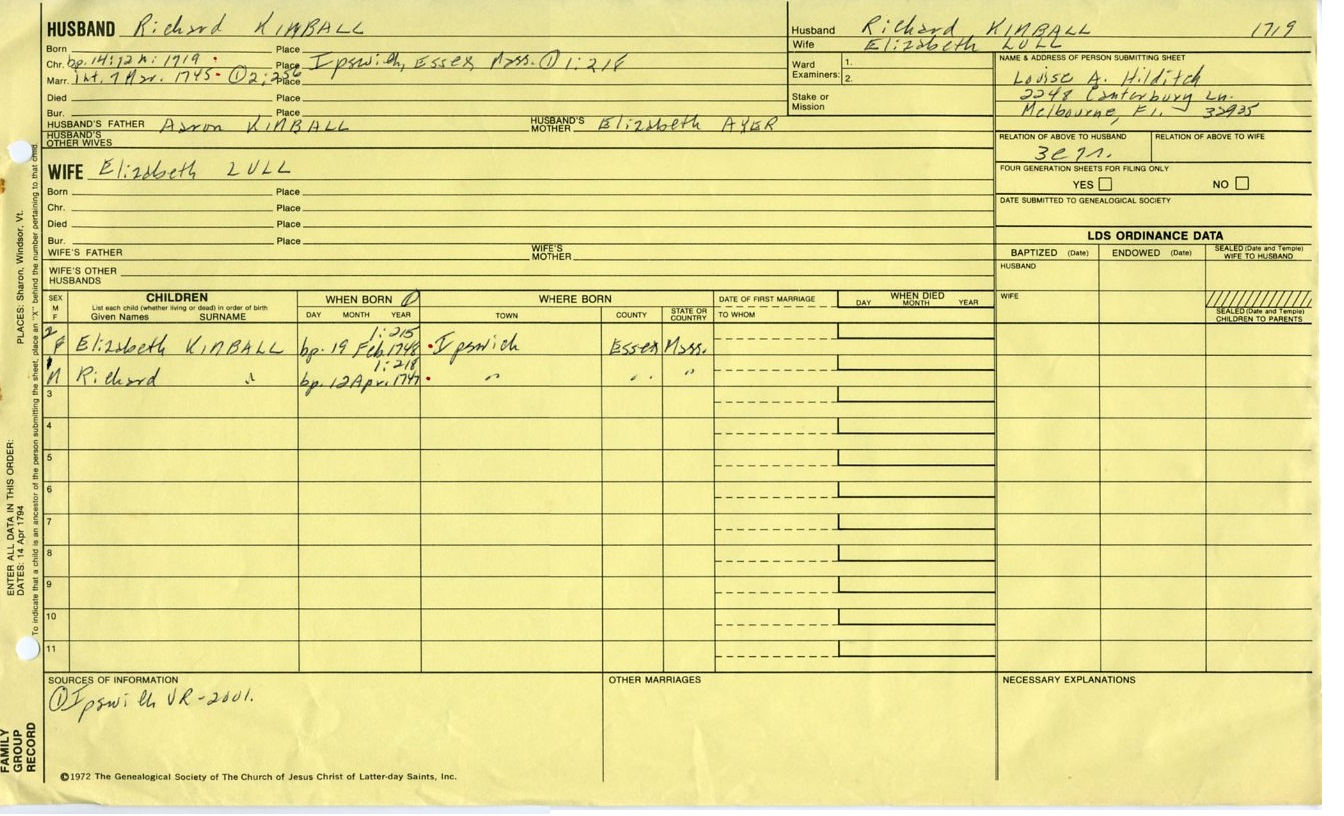 HUSBAND Richard KIMBALL
Born Place
Chr. bp. 14:12m: 1719 Place Ipswich, Essex Mass. ① 1:218
Marr. int. 7 Mar. 1745 ① 2:256 Place
Died Place
Bur. Place
HUSBAND'S FATHER Aaron KIMBALL HUSBAND'S MOTHER Elizabeth AYER
HUSBAND'S OTHER WIVES
Husband Richard KIMBALL 1719
Wife Elizabeth LULL
Ward Examiners: 1.
2.
Stake or Mission
NAME & ADDRESS OF PERSON SUBMITTING SHEET
Louise A. Hilditch
2248 Canterbury Ln.
Melbourne, Fl. 32935
RELATION OF ABOVE TO HUSBAND RELATION OF ABOVE TO WIFE
FOUR GENERATION SHEETS FOR FILING ONLY
YES NO
DATE SUBMITTED TO GENEALOGICAL SOCIETY
WIFE Elizabeth LULL
Born Place
Chr. Place
Died Place
Bur. Place
WIFE'S FATHER WIFE'S MOTHER
WIFE'S OTHER HUSBANDS
LDS ORDINANCE DATA
BAPTIZED (Date) ENDOWED (Date) SEALED (Date and Temple) WIFE TO HUSBAND
HUSBAND
WIFE
SEALED (Date and Temple) CHILDREN TO PARENTS
SEX M F CHILDREN WHEN BORN ① WHERE BORN DATE OF FIRST MARRIAGE WHEN DIED
List each child (whether living or dead) in order of birth
Given Names SURNAME DAY MONTH YEAR TOWN COUNTY STATE OR COUNTRY TO WHOM DAY MONTH YEAR
1:215
2 F Elizabeth KIMBALL bp. 19 Feb. 1748 Ipswich Essex Mass.
1:218
1 M Richard " bp. 12 Apr. 1747 " " "
3
4
5
6
7
8
9
10
11
SOURCES OF INFORMATION
① Ipswich VR-2001.
OTHER MARRIAGES
NECESSARY EXPLANATIONS
©1972 The Genealogical Society of The Church of Jesus Christ of Latter-day Saints, Inc.
FAMILY GROUP RECORD
ENTER ALL DATA IN THIS ORDER:
DATES: 14 Apr 1794
PLACES: Sharon, Windsor, Vt.
To indicate that a child is an ancestor of the person submitting the sheet, place an "X" behind the number pertaining to that child.